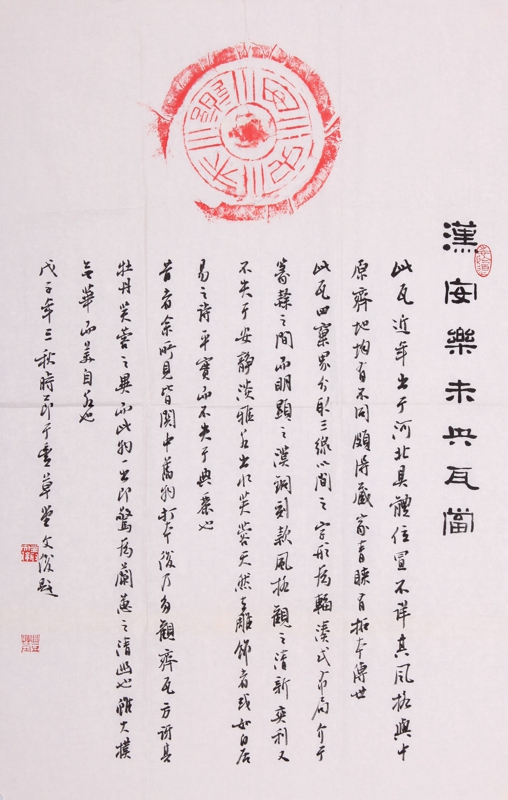 漢安樂未央瓦當
此瓦近年出于河北具體位置不詳其風格與中
原齊地均有不同頗得藏家青睞有拓本傳世
此瓦四稟界分取三線以間之字形為輻湊式布局介于
篆隸之間而明顯之漢銅刻款風格觀之清新爽利又
不失于安靜淡雅若出水芙蓉天然去雕飾者或如白居
易之詩平實而不失于典雅也
昔者余所見皆關中舊物打本後乃多觀齊瓦方訝具
牡丹芙蓉之異而此物一出即驚為蘭蕙之清幽也雖大樸
無華而美自在也
戊子年三秋時節于雲草堂文俊題